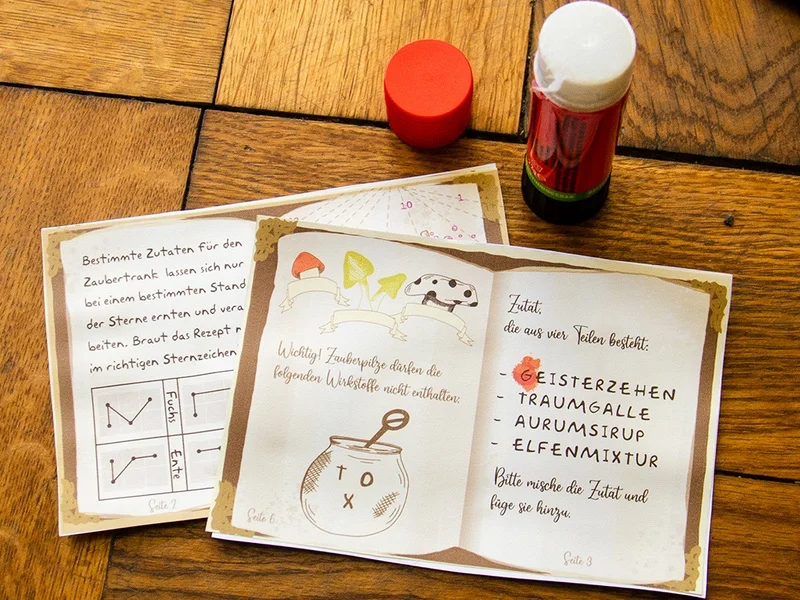 Bestimmte Zutaten für den
Zaubertrank lassen sich nur
bei einem bestimmten Stand
der Sterne ernten und vera
beiten. Braut das Rezept n
im richtigen Sternzeichen
Fuchs
Ente
Seite 2
10
1
Wichtig! Zauberpilze dürfen die
folgenden Wirkstoffe nicht enthalten:
T O
X
Seite 6
Zutat,
die aus vier Teilen besteht:
- GEISTERZEHEN
- TRAUMGALLE
- AURUMSIRUP
- ELFENMIXTUR
Bitte mische die Zutat und
füge sie hinzu.
Seite 3